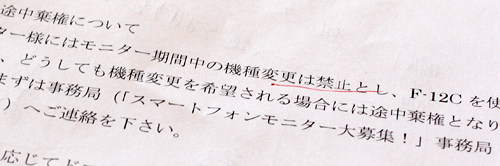 途中棄権について
ター様にはモニター期間中の機種変更は禁止とし、F-12Cを使
、どうしても機種変更を希望される場合には途中棄権となり
まずは事務局(「スマートフォンモニター大募集!」事務局
)へご連絡を下さい。
応じてド